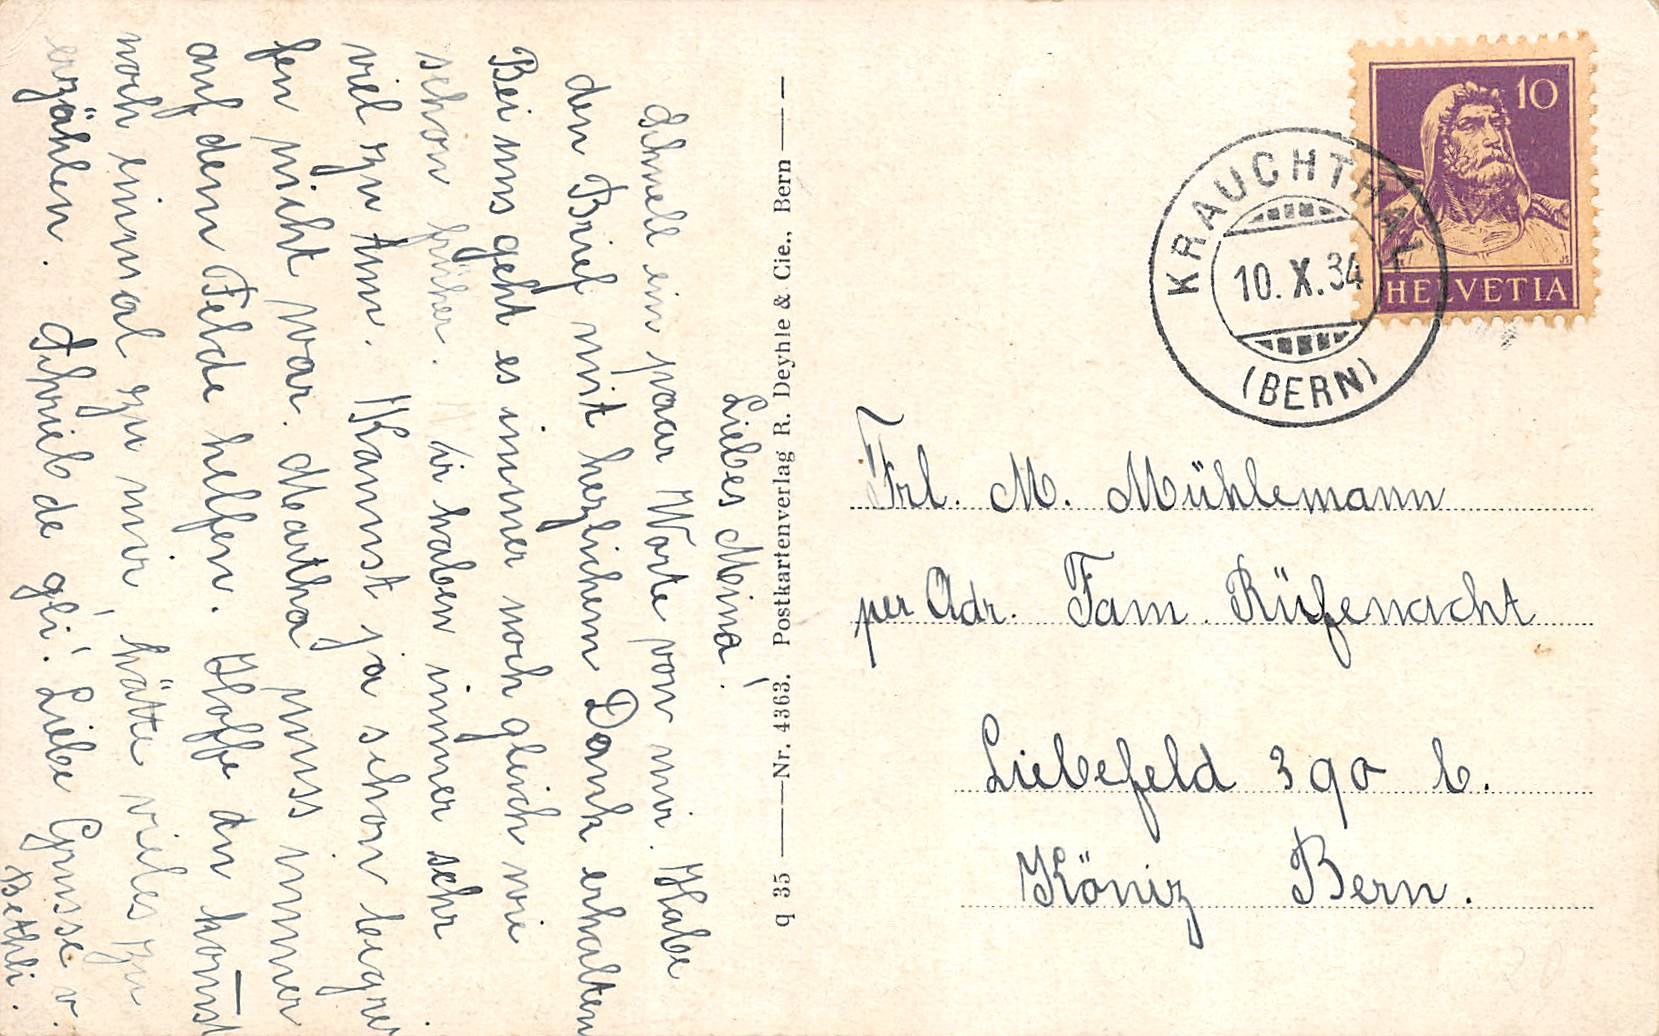 Liebes Mina!
Schnell ein paar Worte von mir. Habe
den Brief mit herzlichem Dank erhalten
Bei uns geht es immer noch gleich wie
schon früher. Wir haben immer sehr
viel zu tun. Kannst ja schon begrei
fen nicht war. Martha muss immer
auf dem Felde helfen. Hoffe du kom̅st
noch einmal zu mir, hätte vieles zu
erzählen. Schrieb de gli!. Liebe Grüsse v.
Bethli.
q 35 Nr. 4363. Postkartenverlag R. Deyhle & Cie., Bern
10
HELVETIA
KRAUCHTHAL
10. X. 34
(BERN)
Frl. M. Mühlemann
per Adr. Fam. Rüfenacht
Liebefeld 390 b.
Köniz Bern.